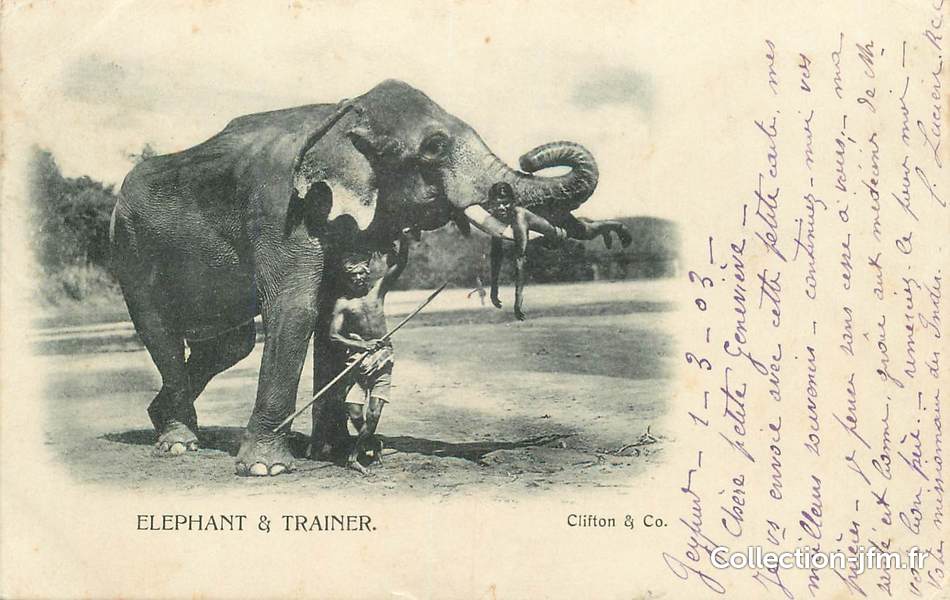 ELEPHANT & TRAINER.
Clifton & Co.
1-3-03-
Chère petite Geneviève
Je vs envoie avec cette petite carte, mes
meilleurs souvenirs - continuez-moi vos
prières - je pense sans cesse à vous, - ma
santé est bonne, grâce aux médecins de
votre bon père. - remerciez le pour moi -
Votre missionnaire des Indes. Lucien
Collection-jfm.fr